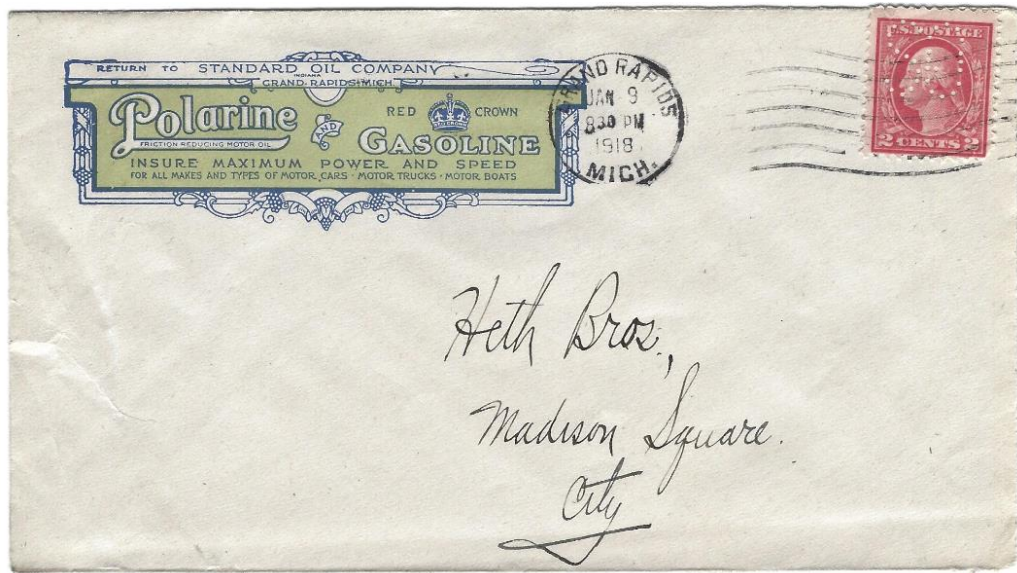 RETURN TO STANDARD OIL COMPANY
INDIANA
GRAND RAPIDS MICH
Polarine
FRICTION REDUCING MOTOR OIL
AND
RED CROWN
GASOLINE
INSURE MAXIMUM POWER AND SPEED
FOR ALL MAKES AND TYPES OF MOTOR CARS · MOTOR TRUCKS · MOTOR BOATS
GRAND RAPIDS
JAN 9
8 30 PM
1918
MICH.
U.S. POSTAGE
2 CENTS 2
Heth Bros.,
Madison Square.
City